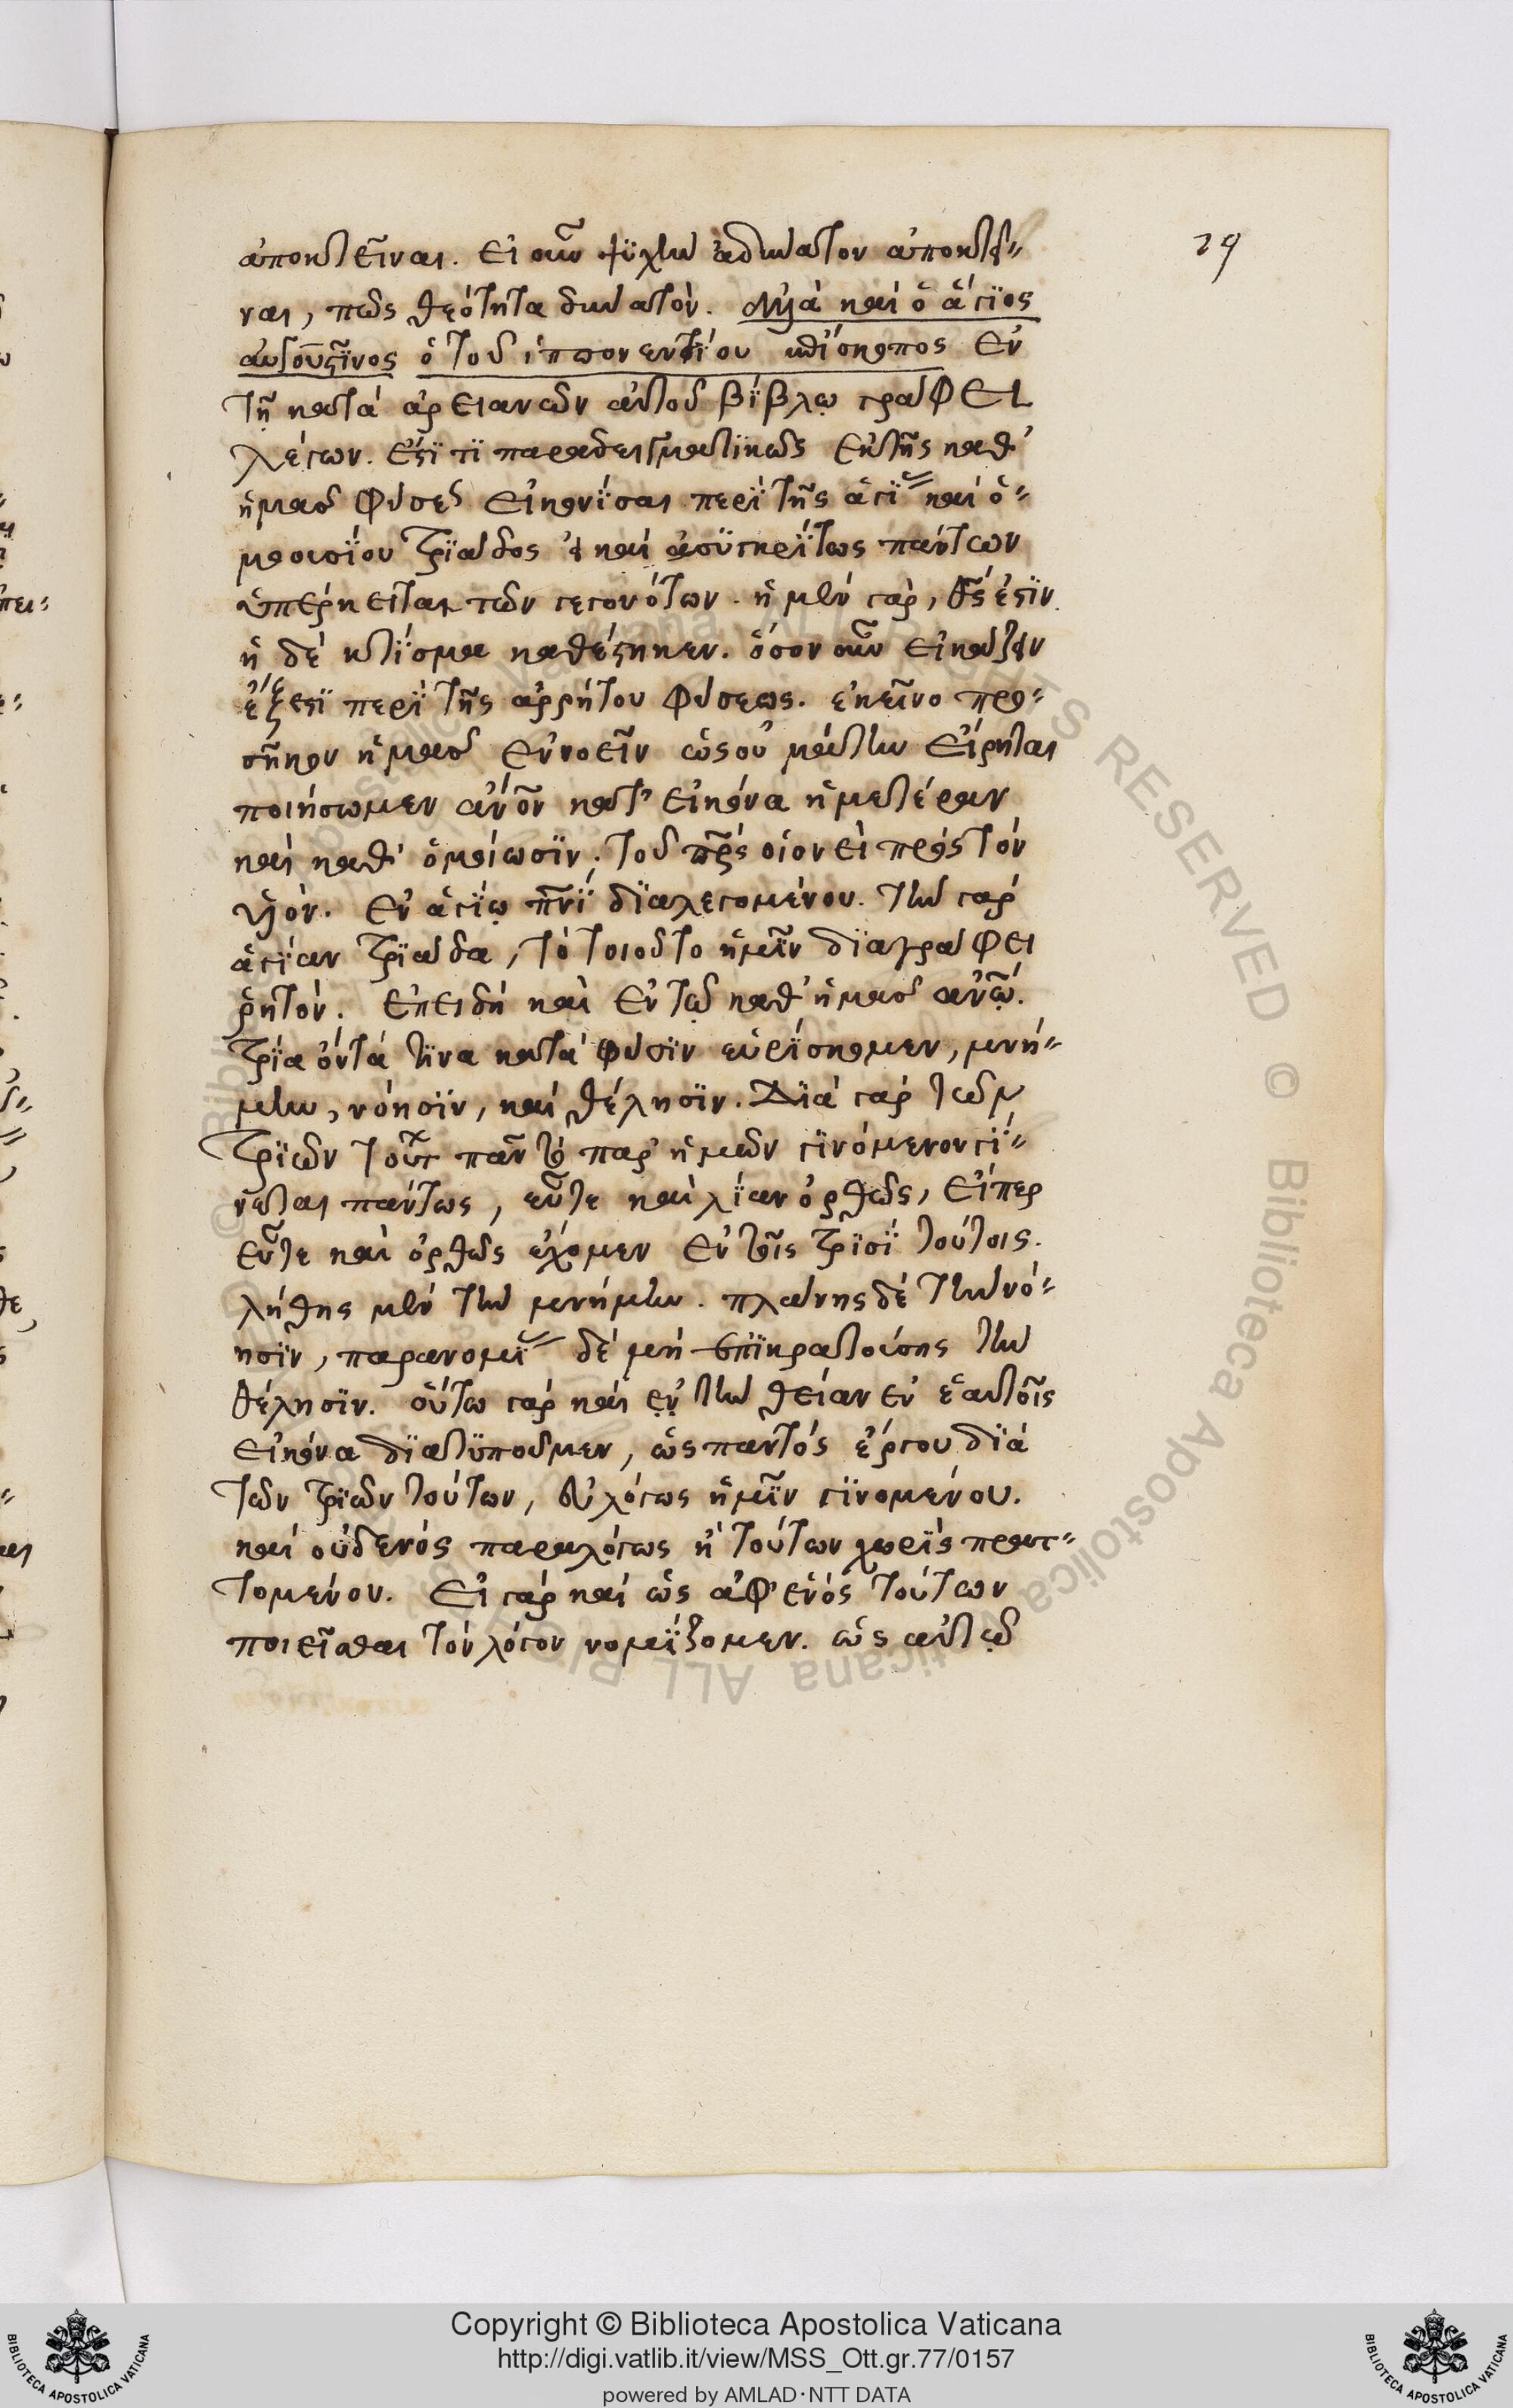 29
ἀποκτεῖναι. Εἰ οὖν ψϋχὴν ἀδύνατον ἀποκτεῖ-
ναι, πῶς θεότητα δυνατόν. Ἀλλὰ καὶ ὁ ἅγϊος
αὐγουστῖνος ὁ τοῦ ἱππονεντϊου ἐπίσκοπος Ἐν
τῇ κατὰ ἀρειανῶν αὐτοῦ βϊβλῳ γράφει
λέγων. ἔστϊ τϊ παραδειγματϊκῶς ἐκ τῆς καθ'
ἡμᾶς φύσεως εἰκονϊσαι περϊ τῆς ἁγϊας καὶ ὁ-
μοουσϊου τρϊάδος εἰ καὶ ἀσϋγκρϊτως πάντων
ὑπέρκειται τῶν γεγονότων. ἡ μὲν γὰρ, θς ἐστϊν
ἡ δὲ κτϊσμα καθέστηκεν. ὅσον οὖν εἰκάζειν
ἔξεστϊ περϊ τῆς ἀρρήτου φύσεως. ἐκεῖνο προ-
σῆκον ἡμᾶς ἐννοεῖν ὡς οὐ μάτην εἴρηται
ποιήσωμεν ἄνον κατ' εἰκόνα ἡμετέραν
καὶ καθ' ὁμοίωσϊν. τοῦ πρς οἱονεὶ πρὸς τὸν
υἱόν. Ἐν ἁγϊῳ πνϊ δϊαλεγομένου. τὴν γὰρ
ἁγϊαν τρϊάδα, τὸ τοιοῦτο ἡμῖν δϊαγράφει
ῥητόν. Ἐπειδὴ καὶ ἐν τῷ καθ' ἡμᾶς ἀνῳ.
τρϊα ὄντα τϊνα κατὰ φύσϊν εὑρϊσκομεν, μνή-
μην, νόησϊν, καὶ θέλησϊν. Δϊὰ γὰρ τῶν
τρϊῶν τούτ πᾶν τὸ παρ' ἡμῶν γϊνόμενον γϊ-
νεται πάντως, εὖτε καὶ λϊαν ὀρθῶς, εἴπερ
εὖτε καὶ ὀρθῶς ἔχομεν ἐν τοῖς τρϊσϊ τούτοις.
λήθης μὲν τὴν μνήμην. πλάνης δὲ τὴν νό-
ησϊν, παρανομϊας δὲ μὴ ἐπϊκρατούσης τὴν
θέλησϊν. οὕτω γὰρ καὶ ἐν τὴν θείαν ἐν ἑαυτοῖς
εἰκόνα δϊατϋποῦμεν, ὡς παντὸς ἔργου δϊὰ
τῶν τρϊῶν τούτων, εὐλόγως ἡμῖν γϊνομένου.
καὶ οὐδενὸς παραλόγως ἢ τούτων χωρϊς πρατ-
τομένου. Εἰ γὰρ καὶ ὡς ἀφ' ἑνὸς τούτων
ποιεῖσθαι τὸν λόγον νομϊζομεν. ὡς αὐτῷ
Copyright © Biblioteca Apostolica Vaticana
http://digi.vatlib.it/view/MSS_Ott.gr.77/0157
powered by AMLAD·NTT DATA